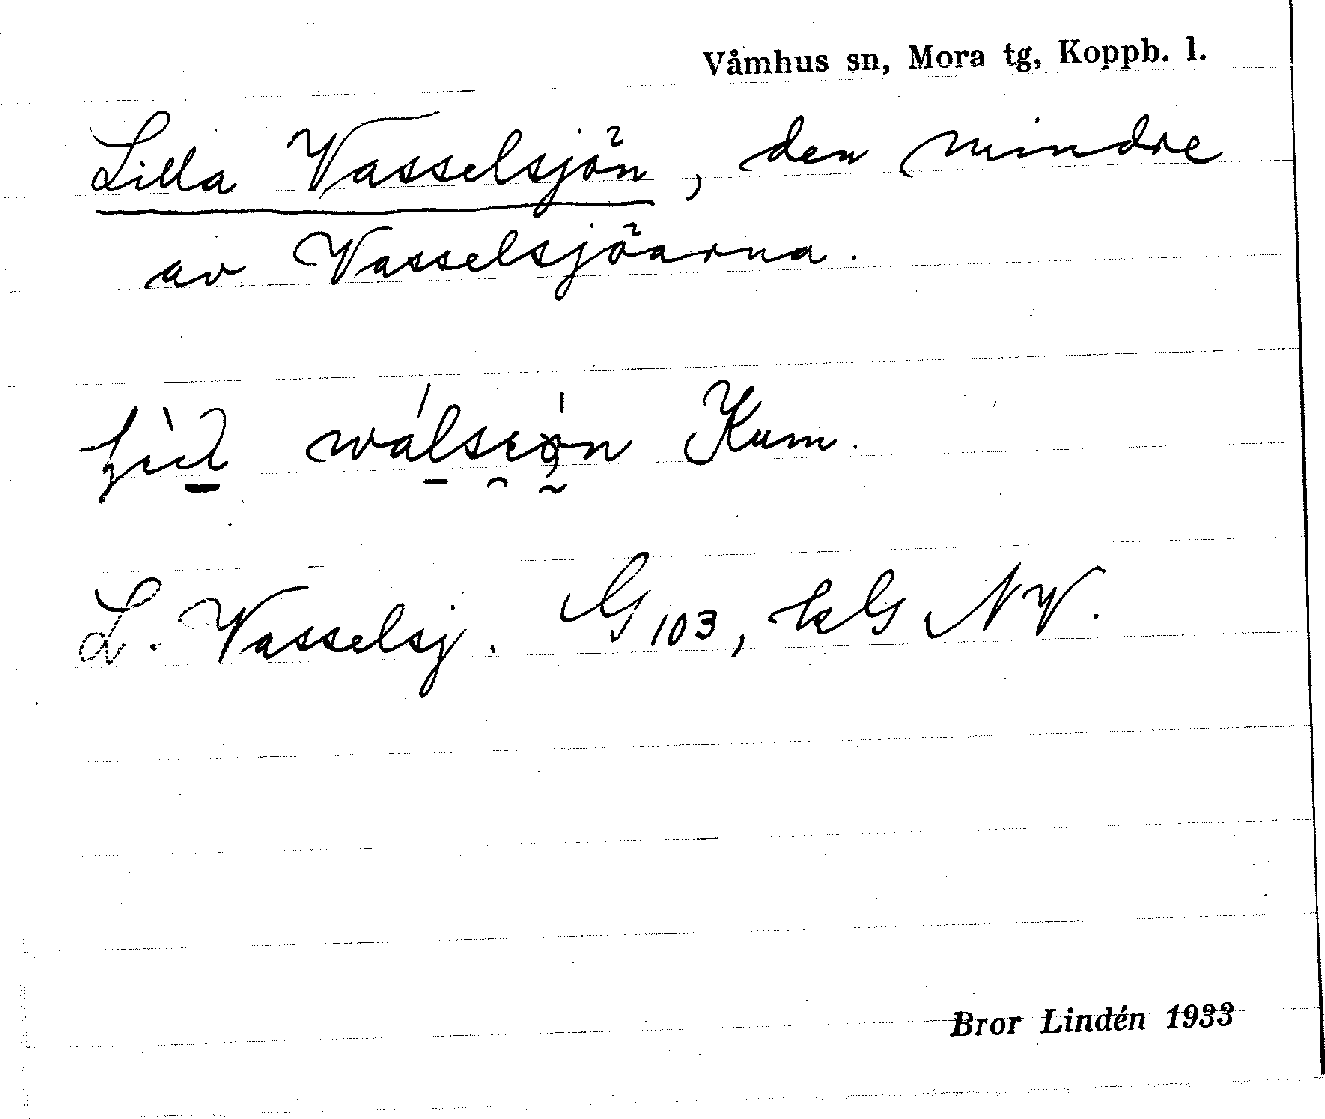 Våmhus sn, Mora tg, Koppb. l.
Lilla Vasselsjön, den mindre
av Vasselsjöarna.
Kum.
L. Vasselsj. G103, kG NV.
Bror Lindén 1933